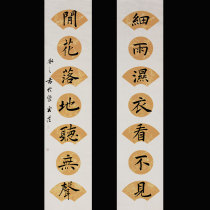 細雨濕衣看不見
閒花落地聽無聲